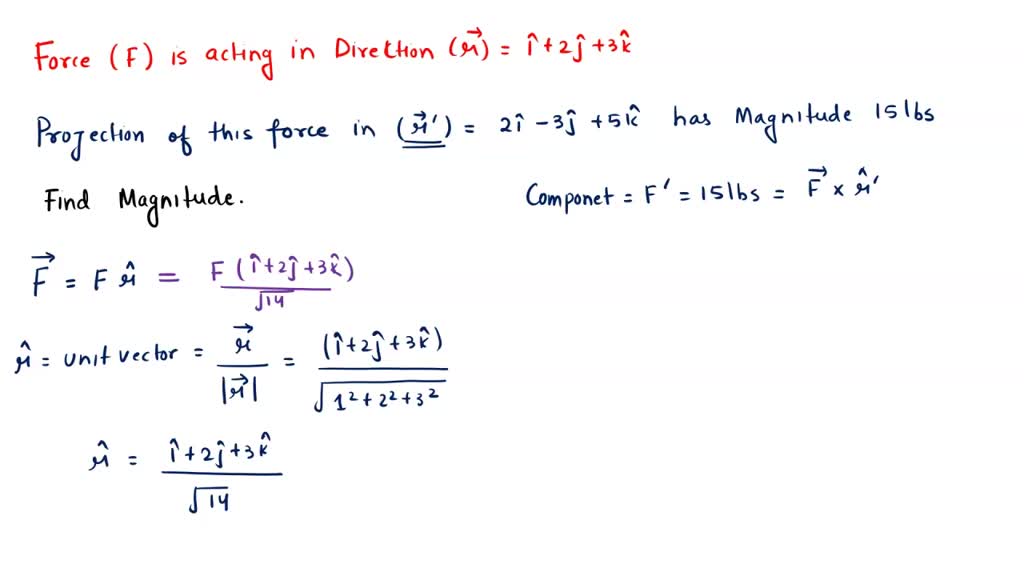 Force (F) is acting in Direction (r⃗) = î + 2ĵ + 3k̂
Projection of this force in (r⃗') = 2î - 3ĵ + 5k̂ has Magnitude 15lbs
Find Magnitude.
Componet = F' = 15lbs = F⃗ × r̂'
F⃗ = F r̂ = F (î + 2ĵ + 3k̂) / √14
r̂ = unit vector = r⃗ / |r⃗| = (î + 2ĵ + 3k̂) / √(1² + 2² + 3²)
r̂ = î + 2ĵ + 3k̂ / √14